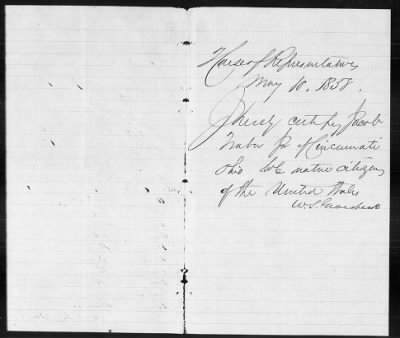 House of Representatives
May 10. 1858.
I hereby certify Jacob
Traber Jr of Cincinnati
Ohio to be native citizens
of the United States
W. S. Groesbeck